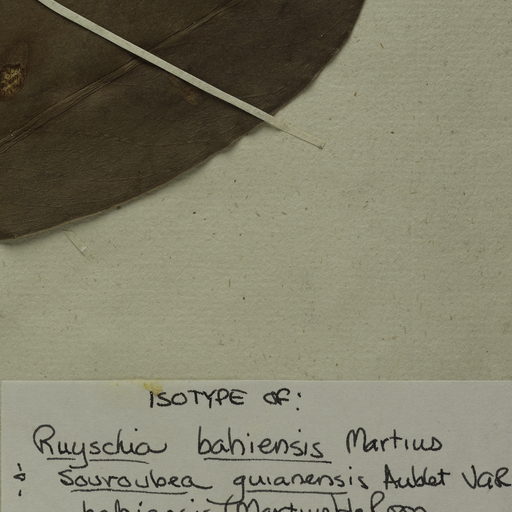 ISOTYPE OF:
Ruyschia bahiensis Martius
& Souroubea guianensis Aublet VAR
bahiensis (Martius)